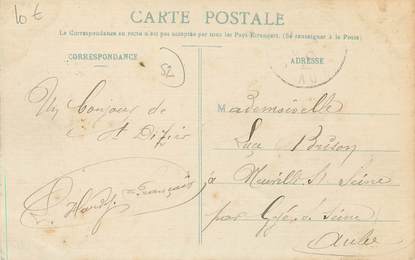 10 €
CARTE POSTALE
Le Correspondance au recto n'est pas acceptée par tous les Pays Etrangers. (Se renseigner à la Poste)
CORRESPONDANCE
ADRESSE
52
Un bonjour de
St Dizier
François
Mademoiselle
Luce
à Neuville St Seine
par Gyé s/ Seine
Aube